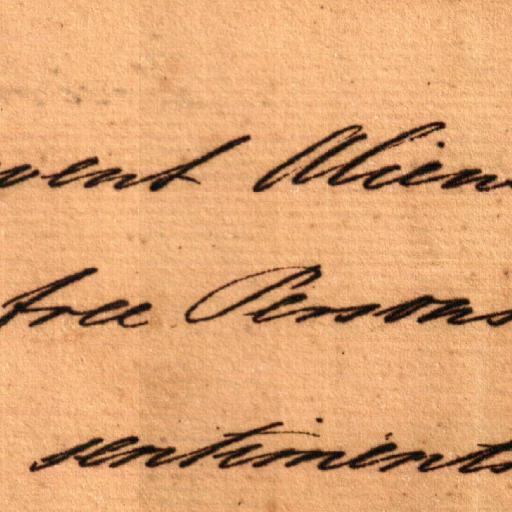 vent Alien
free Persons
sentiments